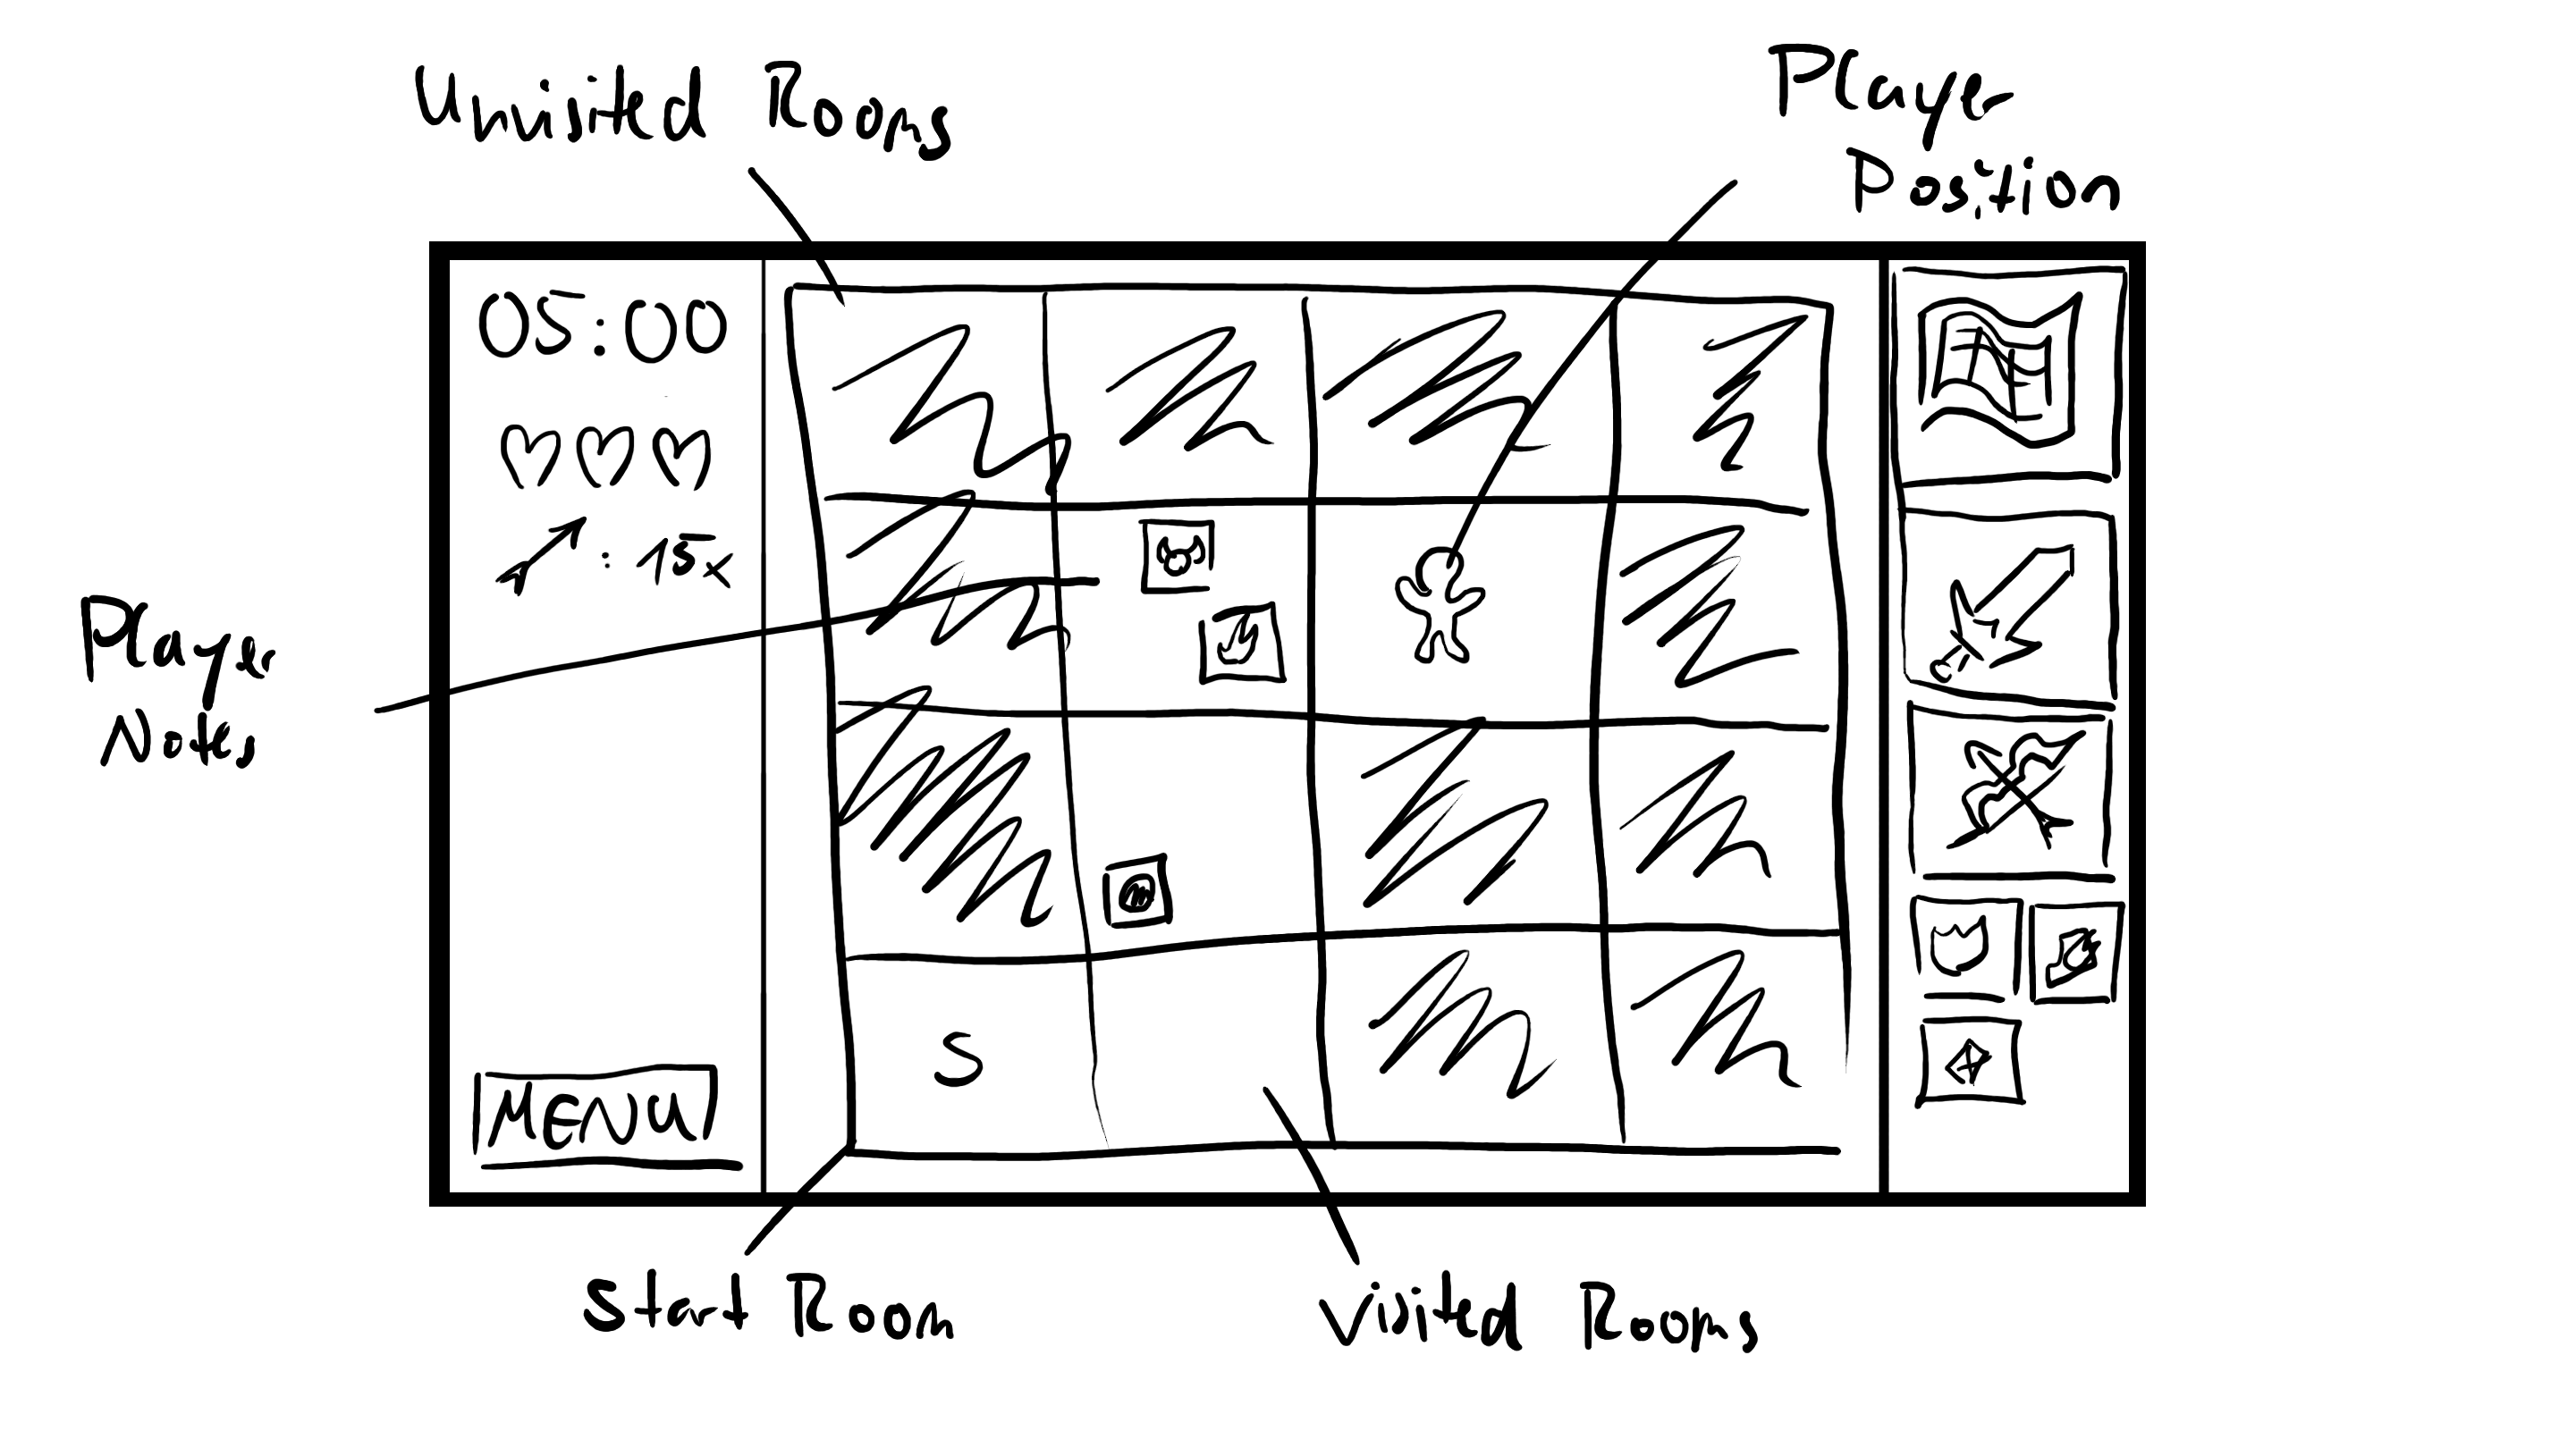 Unvisited Rooms
Player
Position
05:00
: 15x
Player
Notes
S
MENU
Start Room
Visited Rooms